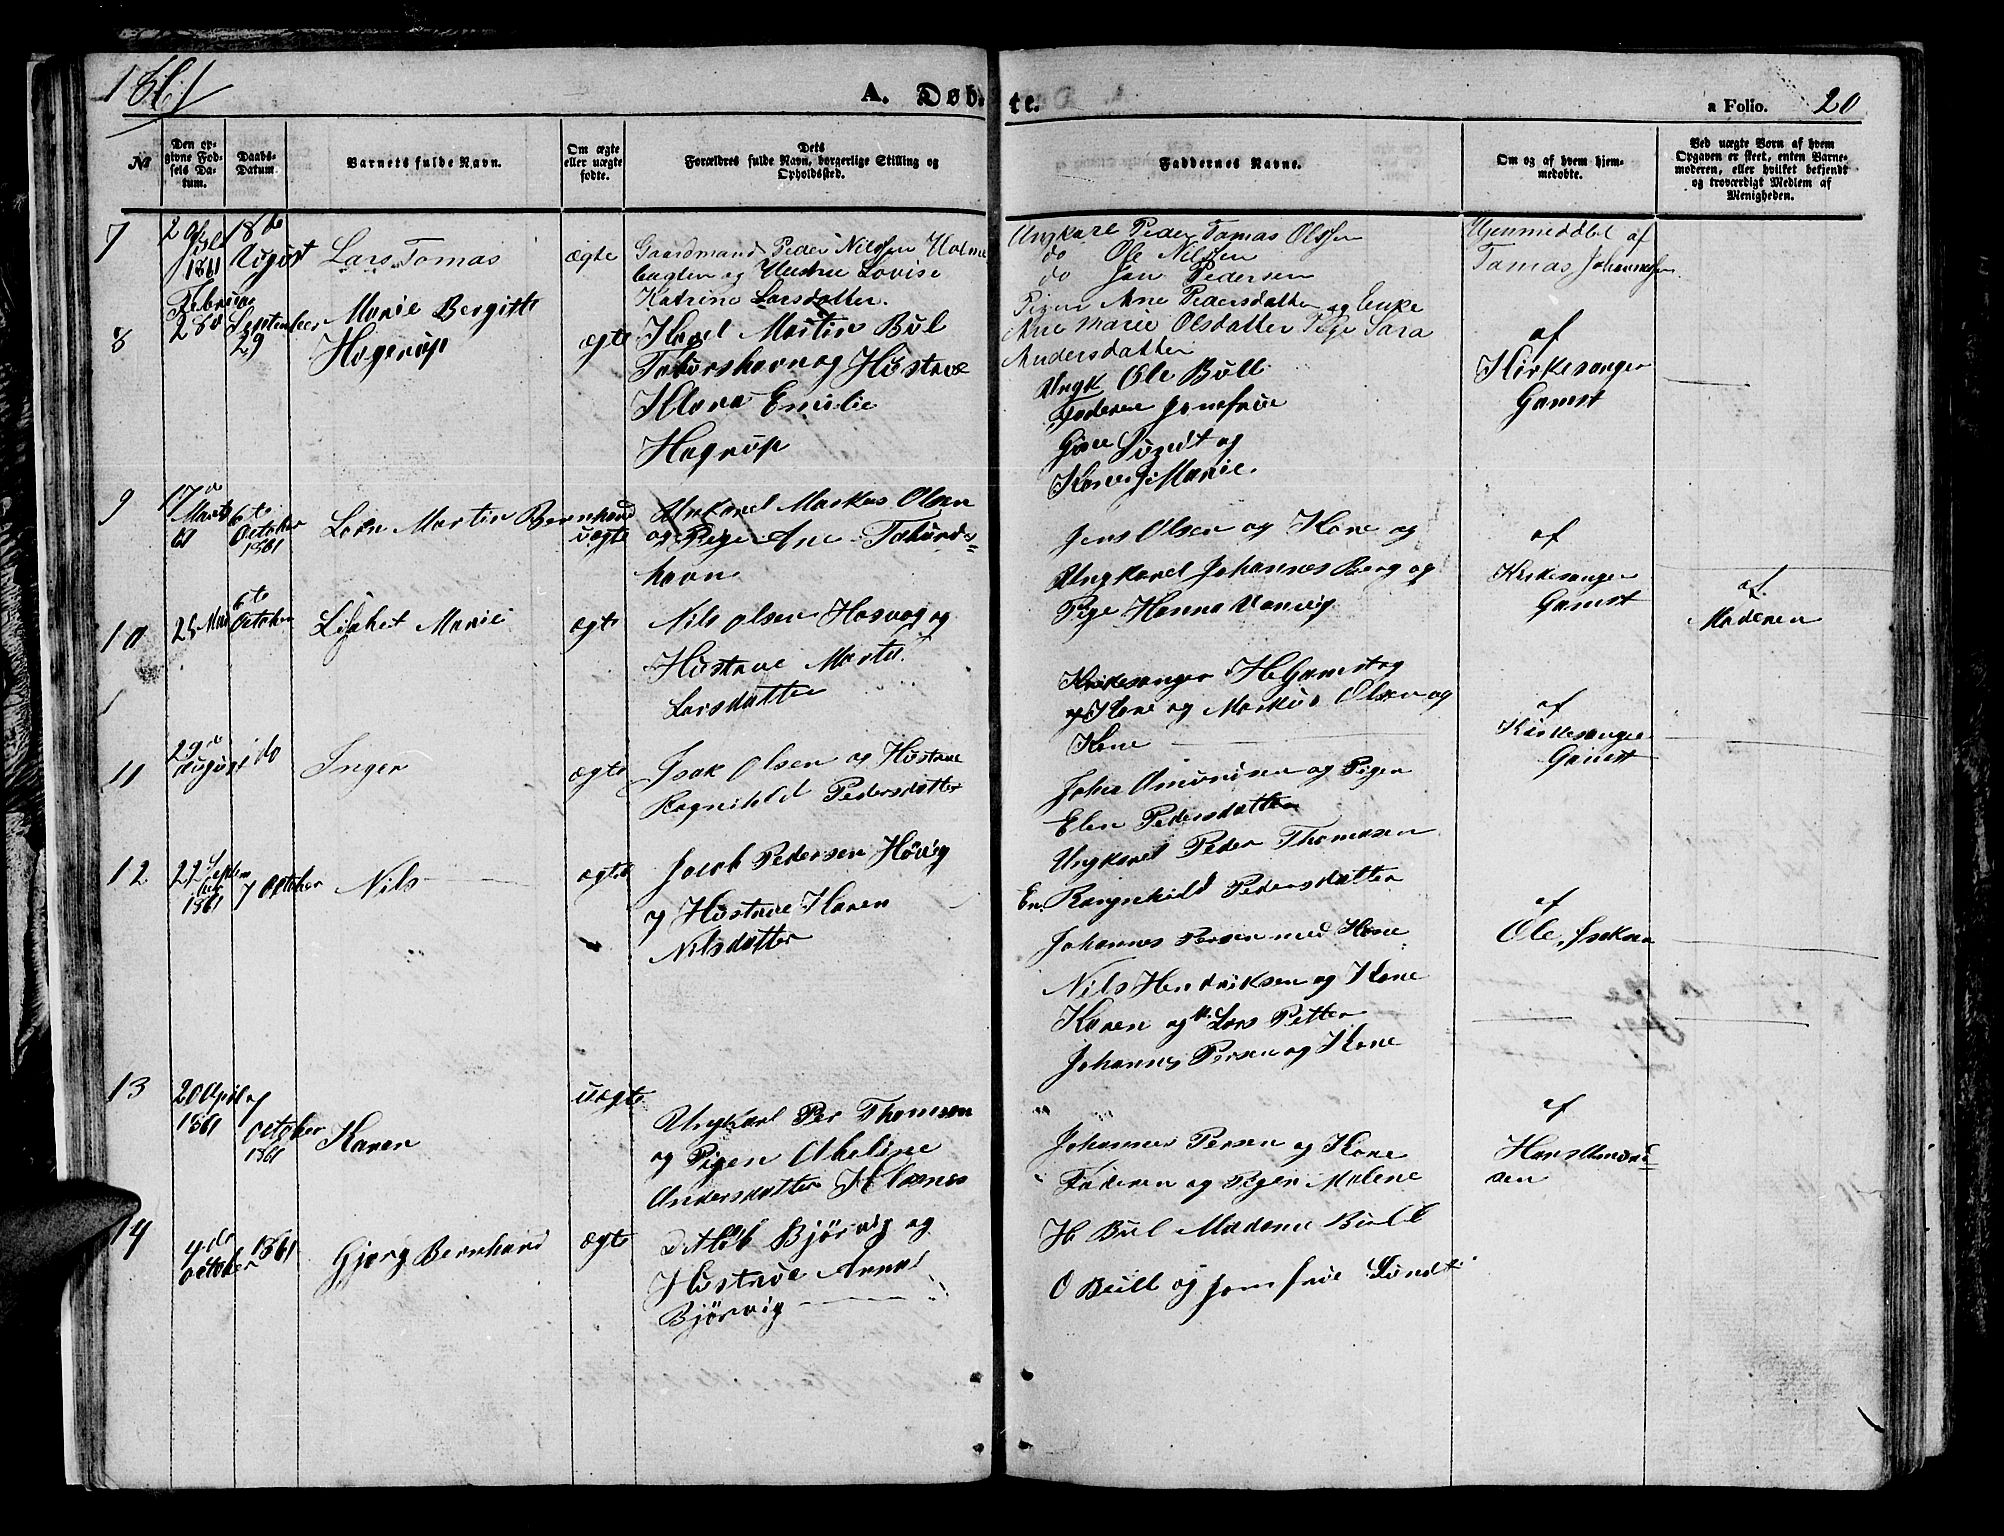 1861
A. Døb-
te.
a Folio. 20
№
Den op-
givne Fød-
sels Da-
tum.
Daabs-
Datum.
Barnets fulde Navn.
Om ægte
eller uægte
fødte.
Dets
Forældres fulde Navn, borgerlige Stilling og
Opholdssted.
Faddernes Navne.
Om og af hvem hjem-
medøbte.
Ved uægte Børn af hvem
Opgaven er skeet, enten Barne-
moderen, eller hvilket bekjendt
og troværdigt Medlem af
Menigheden.
7
1861
18de
August
Lars Tomas
ægte
Gaardmand Peder Nilssen Holme
og Hustru Lovise
Katrine Larsdatter.
Ungkarl Peder Tomas Olssen
do Ole Nilssen
do Jon Pedersen
Pigen Ane Pedersdatter og Enke
Ane Marie Olsdatter Pige Sara
Andersdatter
Hjemmedøbt af
Tomas Johannessen
8
Februar
28
September
29
Marie Bergitte
Hagerup
ægte
Karel Martin Bul
og Hustrue
Klara Emilie
Hagrup
Ungk Ole Bull
Faderen Jomfrue
Sundt og
Marie.
af
Kirkesanger
Gamst
9
17de
Marts
61
6te
October
1861
Martin Bernhard
uægte
Unkarel Markus Olsen
og Pige Ane
havn
Jens Olsen og Kone og
Ungkarel Johannes Berg og
Pige Hanna
af
Kirkesanger
Gamst
af
Moderen
10
6te
October
Lisbet Marie
ægte
Nils Olsen Hasvag og
Hustrue Marte
Larsdatter
Kirkesanger H Gamst og
Kone og Markus Olsen og
Kone
af
Kirkesanger
Gamst
11
29de
August
do
Inger
ægte
Isak Olsen og Hustrue
Ragnihld Pedersdatter
Johan Amundsen og Pigen
Elen Pedersdatter
Ungkarel Peder Thomasen
En. Rangnhild Pedersdatter
12
22 Septem
ber
1861
7 October
Nils
ægte
Jacob Pedersen Høvig
og Hustrue Karen
Nilsdatter
Johannes Persen med Kone
Nils Hendriksen og Kone
Karen og Lars Petter
Johannes Persen og Kone
af
Ole Isaksen
13
20 April
1861
7
October
1861
Karen
uægte
Ungkarl Per Thomsen
og Pigen Abeline
Andersdatter Holmnes
Johannes Persen og Kone
Faderen og Pigen Malene
af
Hans Amund
sen
14
4de
October
1861
Gjørg Bernhard
ægte
Ditløb Bjørvig og
Hustrue Anna
Bjørvig
H Bul Madame Bull
O Bull og Jomfrue Sundt